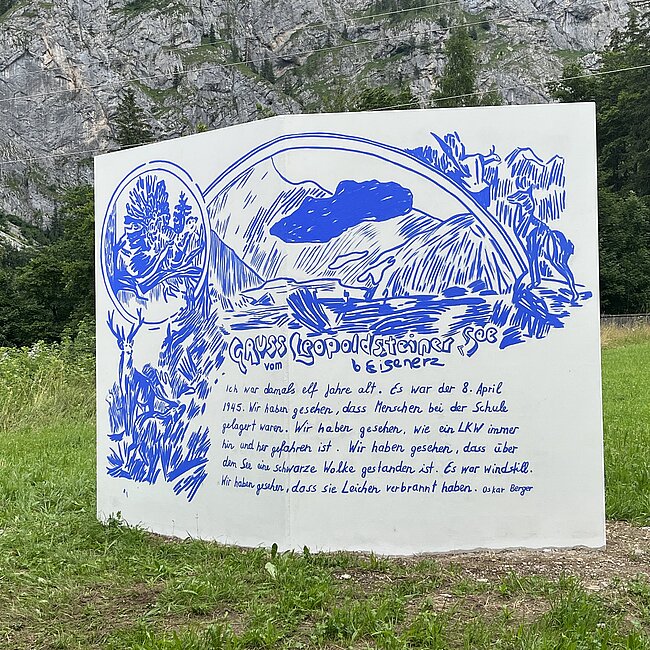 GRUSS vom Leopoldsteiner See
b Eisenerz
Ich war damals elf Jahre alt. Es war der 8. April
1945. Wir haben gesehen, dass Menschen bei der Schule
gelagert waren. Wir haben gesehen, wie ein LKW immer
hin und her gefahren ist. Wir haben gesehen, dass über
dem See eine schwarze Wolke gestanden ist. Es war windstill.
Wir haben gesehen, dass sie Leichen verbrannt haben. Oskar Berger